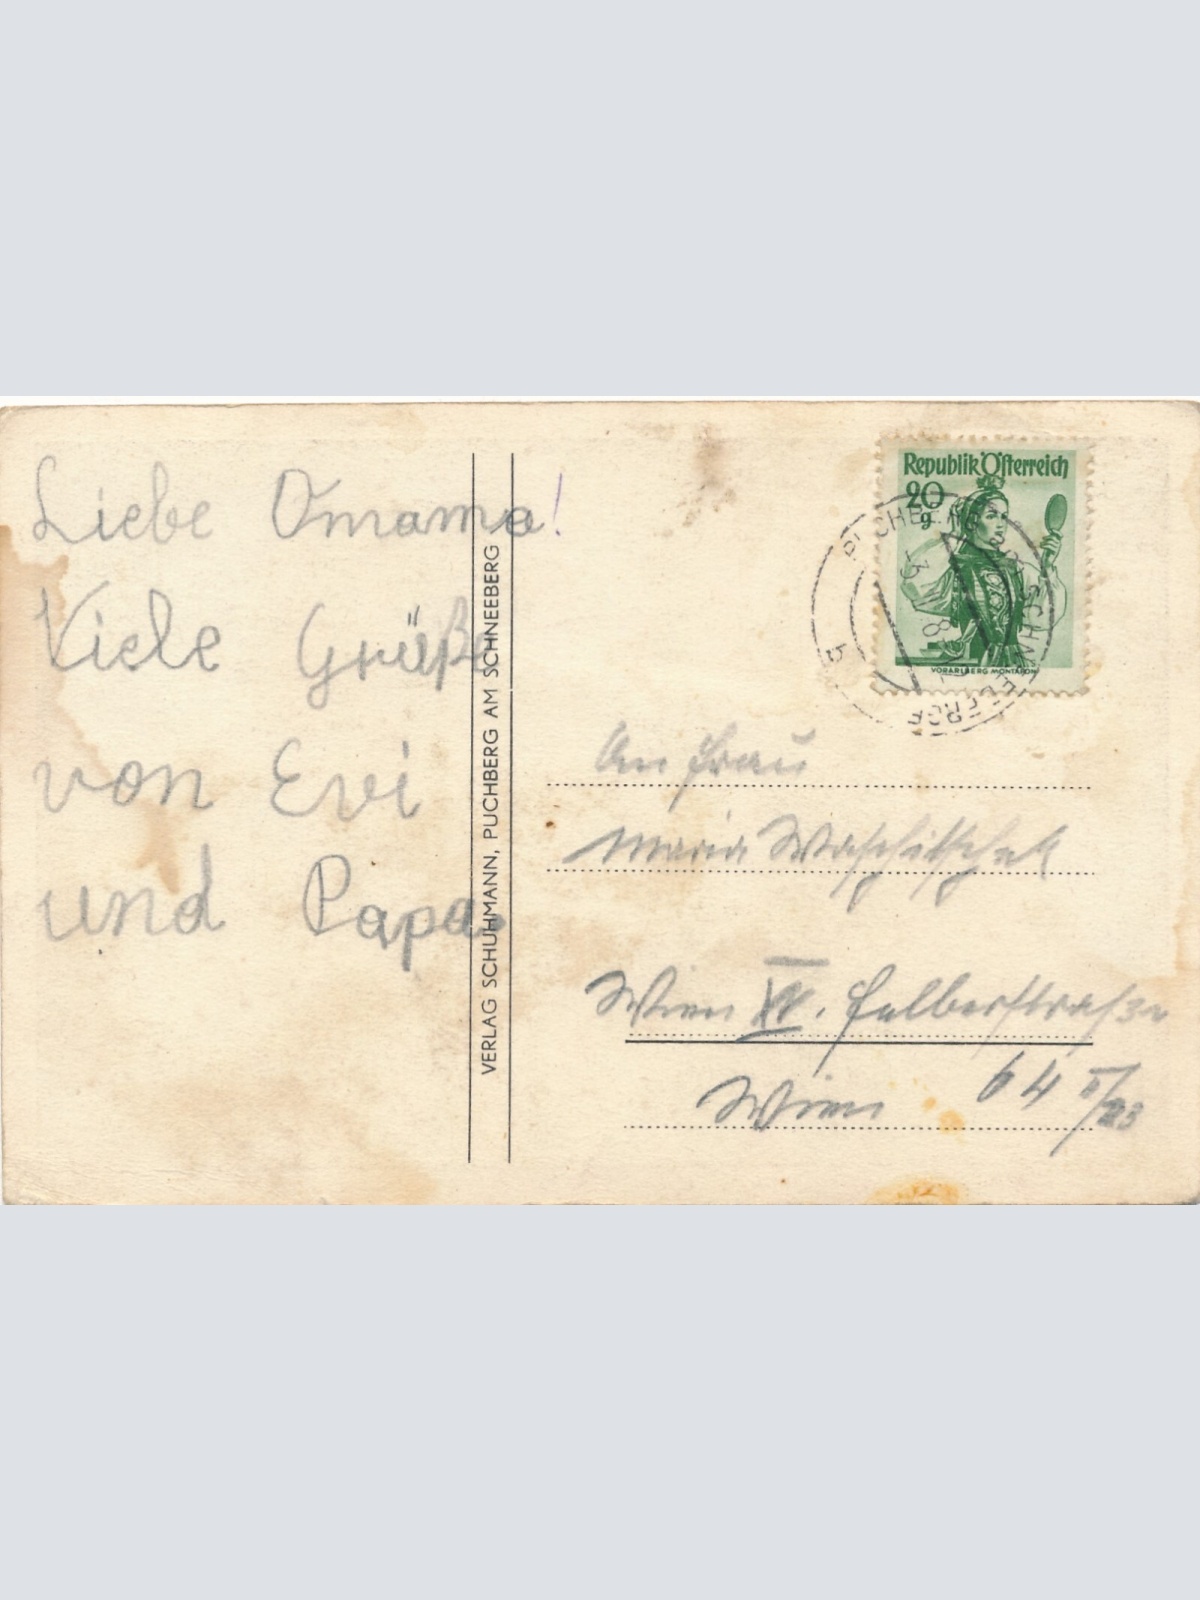 Liebe Omama!
Viele Grüße
von Evi
und Papa.
VERLAG SCHUHMANN, PUCHBERG AM SCHNEEBERG
Republik Österreich
20
g
VORARLBERG MONTAFON
PUCHBERG AM SCHNEEBERG
An Frau
Maria
Wien XV. Felberstraße
64 II/23
Wien